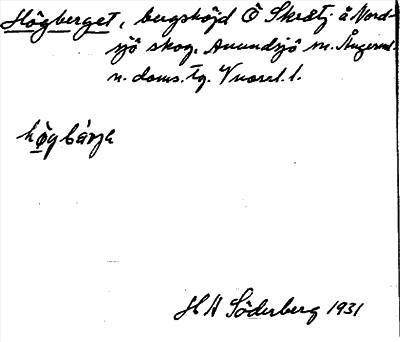 Högberget, bergshöjd Ö Skrätj. å Nord-
sjö skog. Anundsjö sn. Ångerml.
n. doms. tg. V
högbärje
H A Söderberg 1931